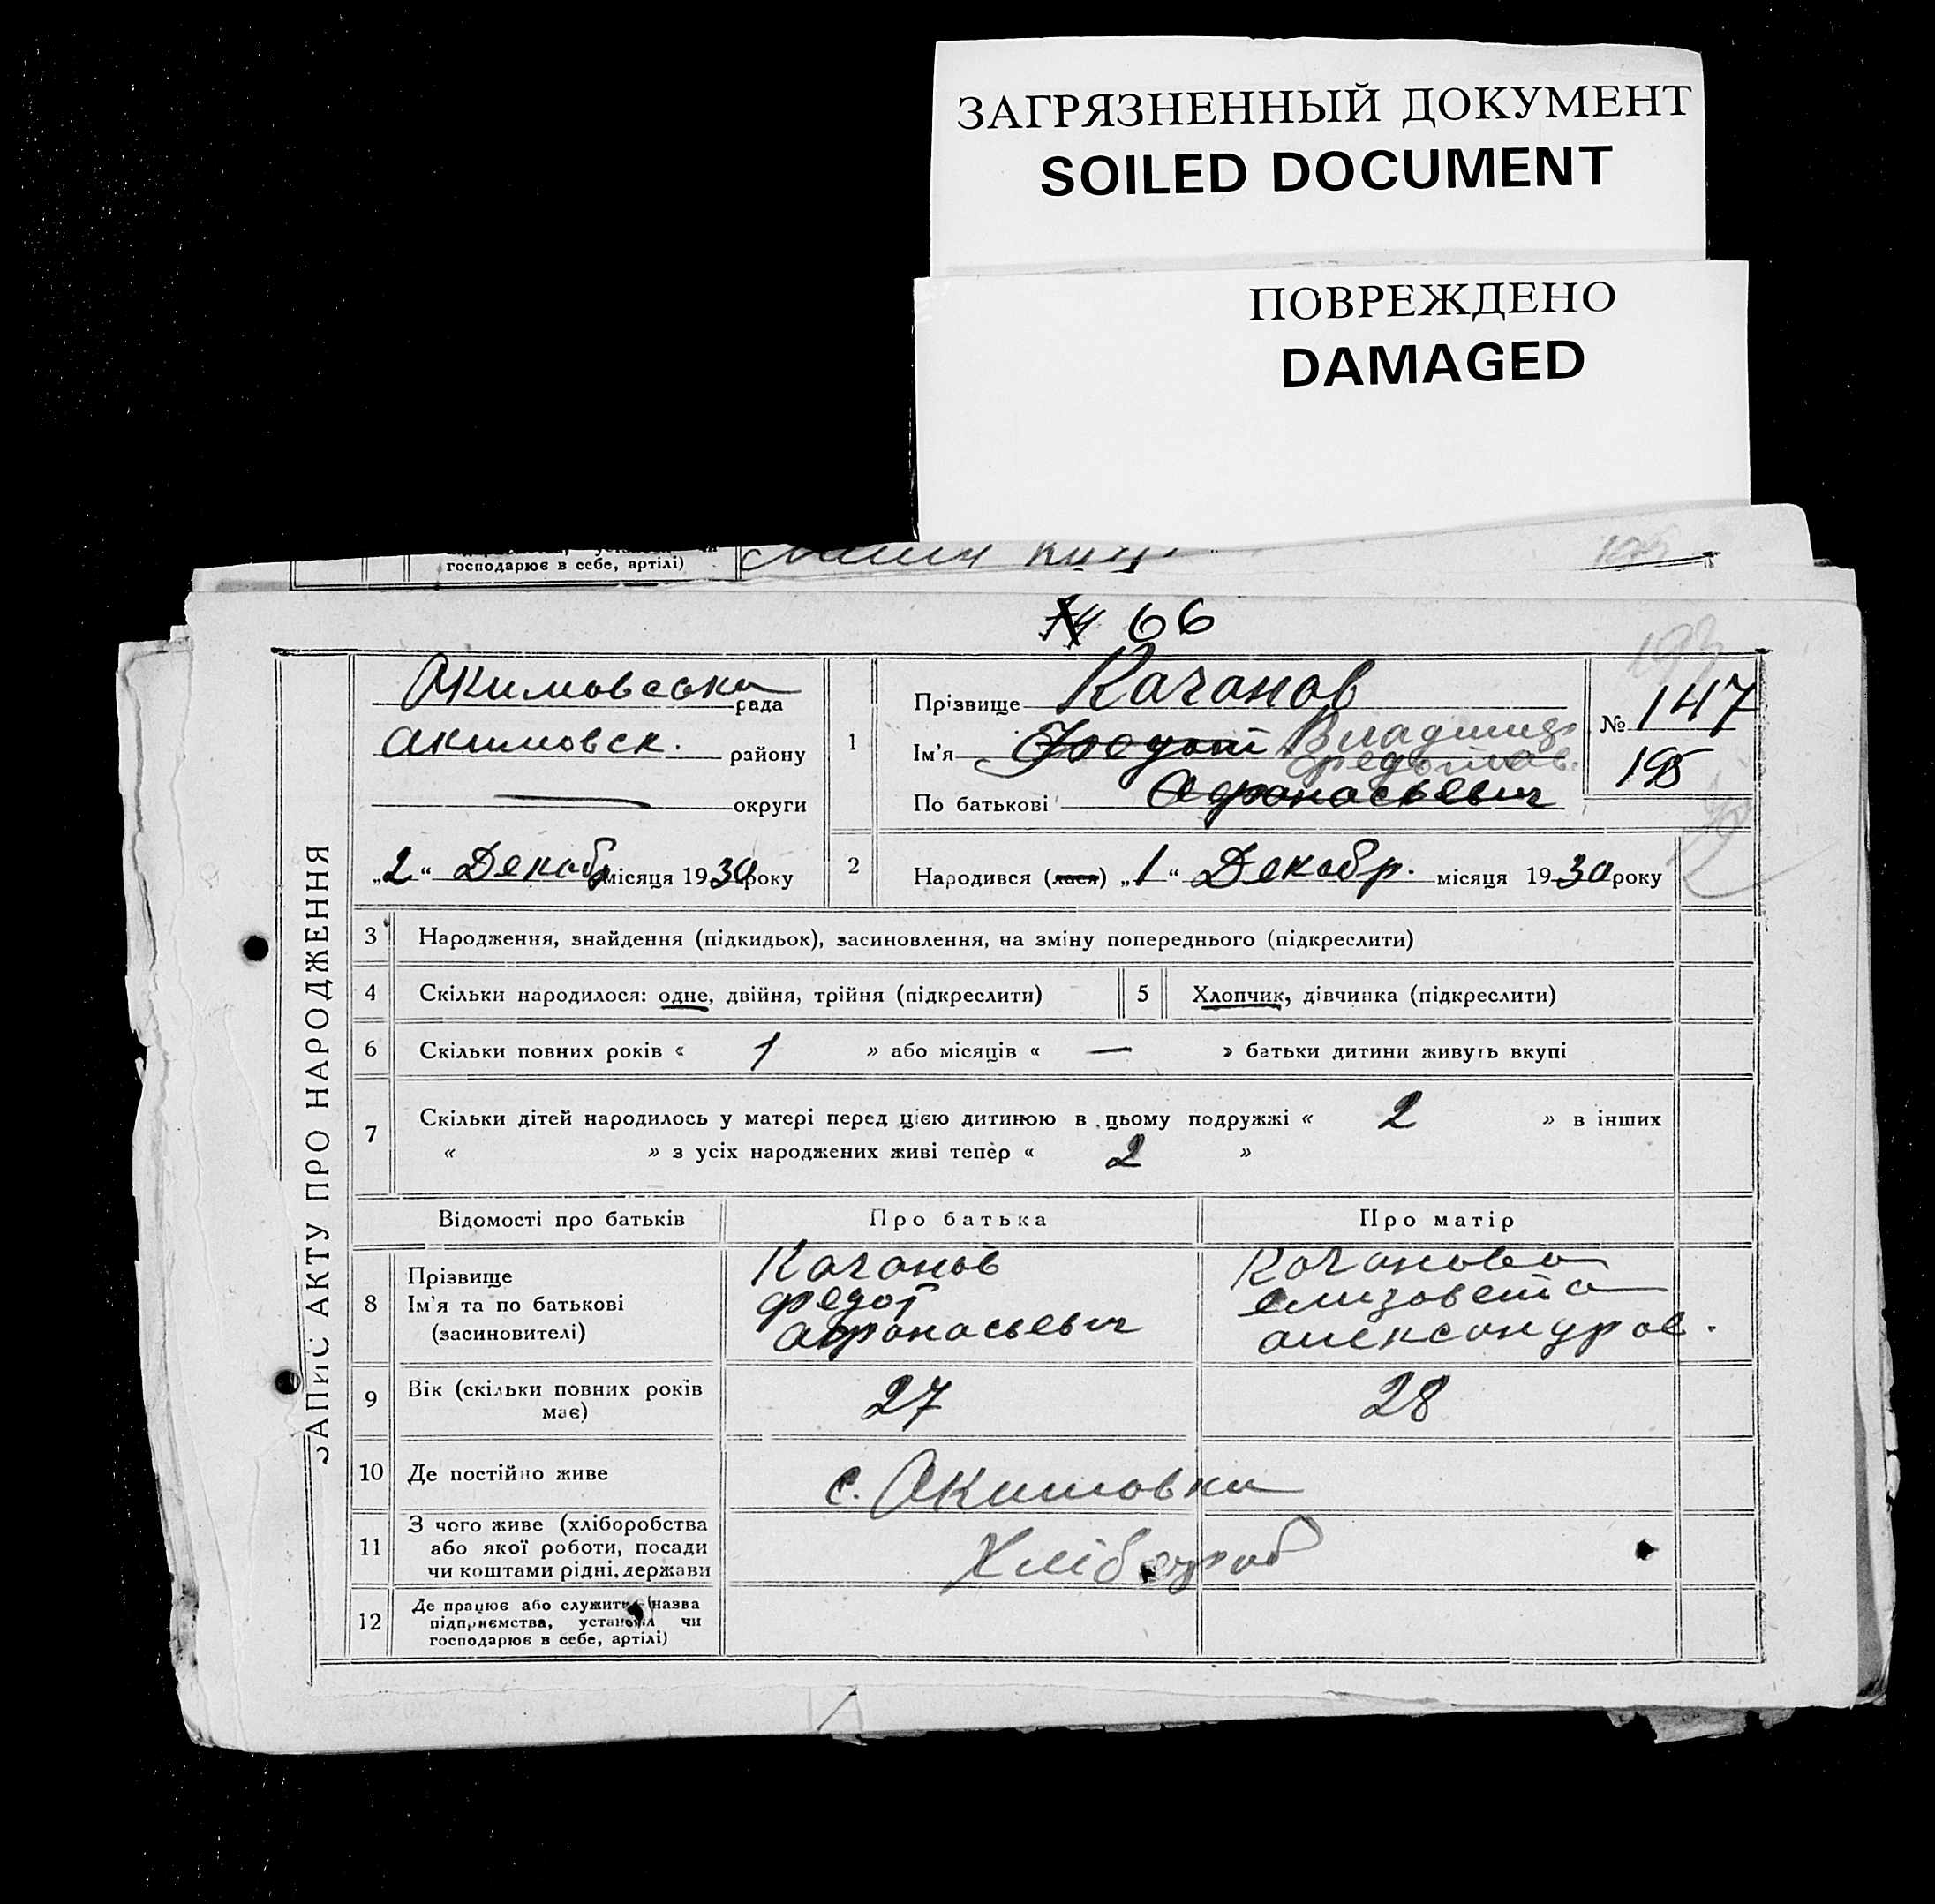 ЗАГРЯЗНЕННЫЙ ДОКУМЕНТ
SOILED DOCUMENT
ПОВРЕЖДЕНО
DAMAGED
господарює в себе, артілі)
66
ЗАПИС АКТУ ПРО НАРОДЖЕННЯ
Акимовська рада
Акимовск. району
— округи
„2“ Декабр місяця 1930 року
1
Прізвище Качанов
Ім'я Федот Владимир
Федотов.
По батькові Афонасьевич
№ 147
195
2
Народився (лася) „1“ Декабр. місяця 1930 року
3 Народження, знайдення (підкидьок), засиновлення, на зміну попереднього (підкреслити)
4 Скільки народилося: одне, двійня, трійня (підкреслити)
5 Хлопчик, дівчинка (підкреслити)
6 Скільки повних років « 1 » або місяців « — » батьки дитини живуть вкупі
7 Скільки дітей народилось у матері перед цією дитиною в цьому подружжі « 2 » в інших
« » з усіх народжених живі тепер « 2 »
Відомості про батьків Про батька Про матір
8
Прізвище
Ім'я та по батькові
(засиновителі)
Качанов
Федот
Афонасьевич
Качанова
Елизовета
Александров.
9 Вік (скільки повних років
має)
27 28
10 Де постійно живе с. Акимовка
11 З чого живе (хліборобства
або якої роботи, посади
чи коштами рідні, держави
Хлібороб
12 Де працює або служить (назва
підприємства, установи чи
господарює в себе, артілі)